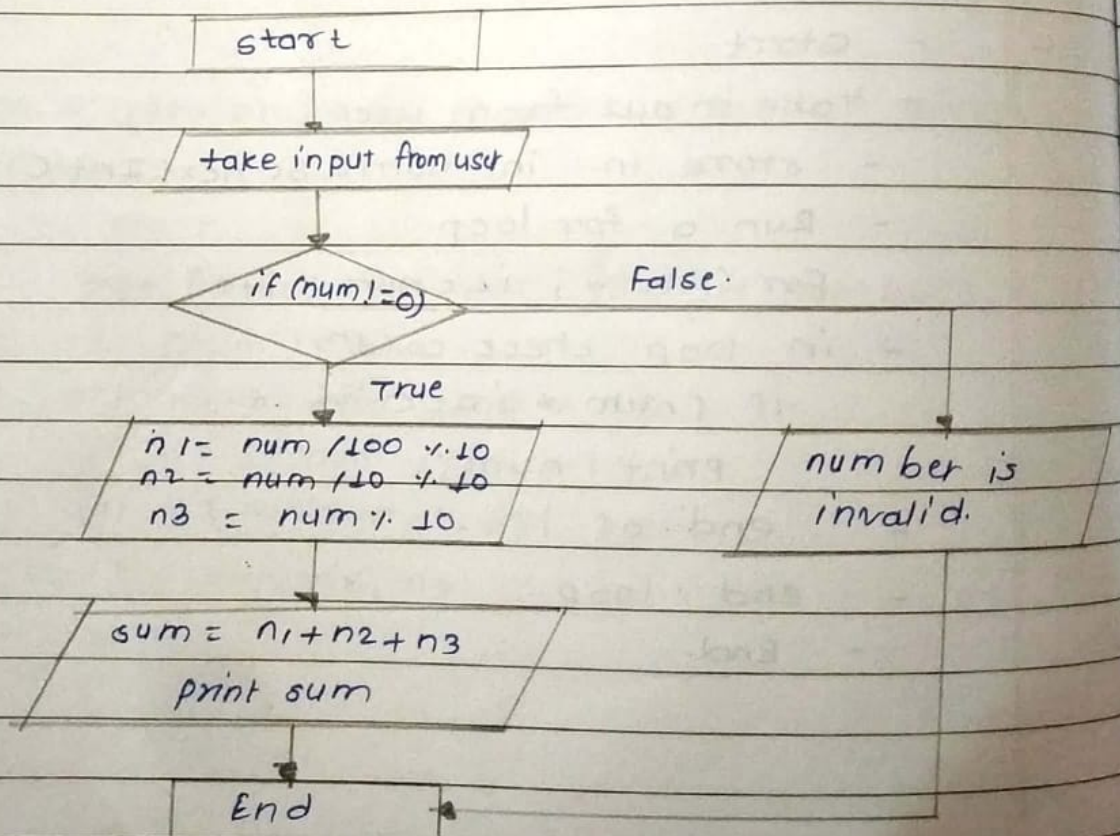 start
take input from user
if (num!=0)
False.
True
n1= num /100 %10
n2= num /10 % 10
n3 = num % 10
number is
invalid.
sum= n1+n2+n3
print sum
End